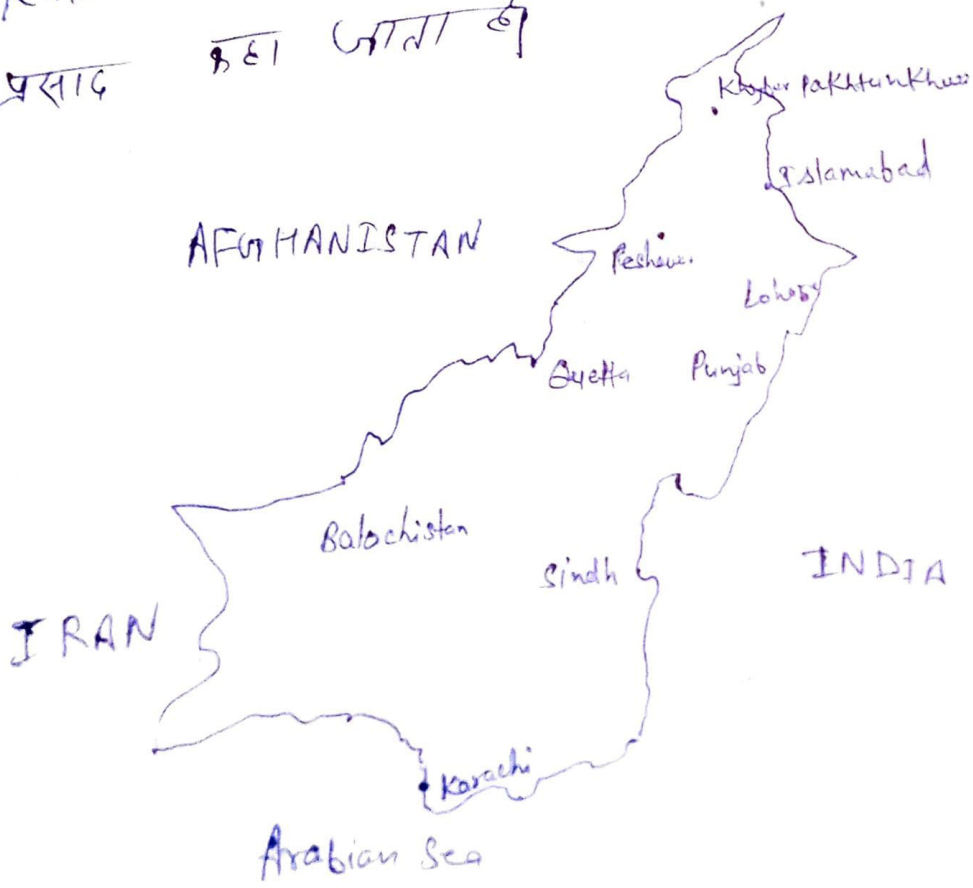 प्रसाद कहा जाता है।
Khyber Pakhtunkhwa
Islamabad
AFGHANISTAN
Peshawar
Lahore
Quetta
Punjab
Balochistan
Sindh
INDIA
IRAN
Karachi
Arabian Sea